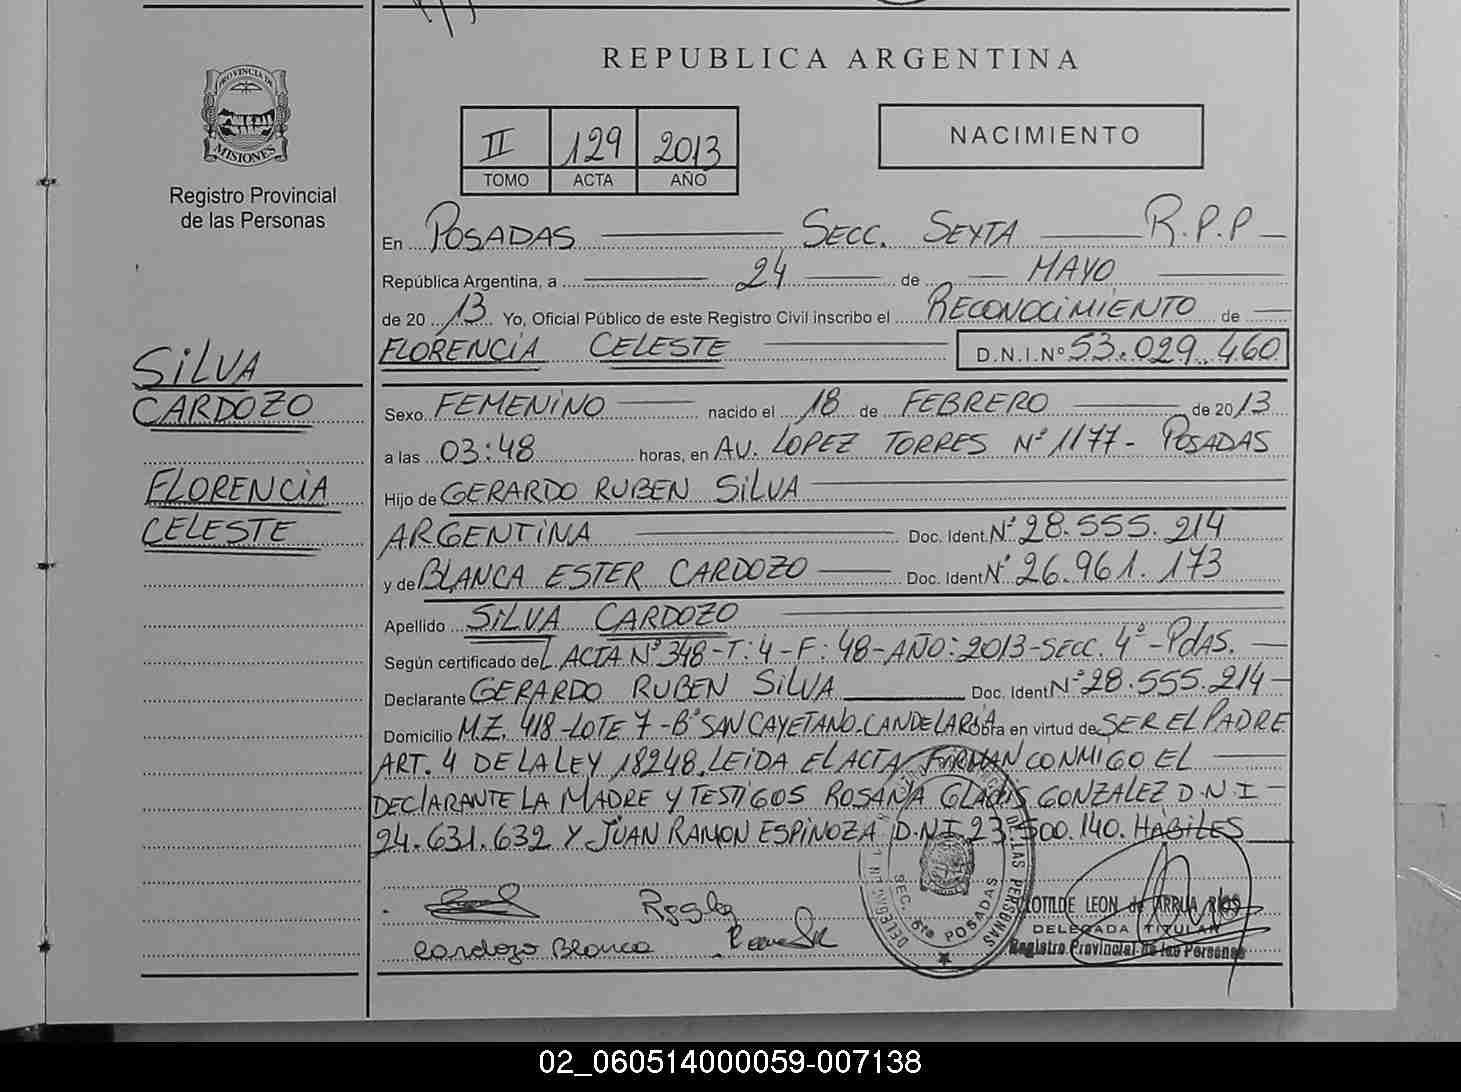 REPUBLICA ARGENTINA
PROVINCIA DE
MISIONES
Registro Provincial
de las Personas
II 129 2013
TOMO ACTA AÑO
NACIMIENTO
En POSADAS SECC. SEXTA R.P.P
República Argentina, a 24 de MAYO
de 20 13 Yo, Oficial Público de este Registro Civil inscribo el RECONOCIMIENTO de
FLORENCIA CELESTE D.N.I.Nº 53.029.460
SILVA
CARDOZO
FLORENCIA
CELESTE
Sexo FEMENINO nacido el 18 de FEBRERO de 2013
a las 03:48 horas, en AV. LOPEZ TORRES Nº 1177- POSADAS
Hijo de GERARDO RUBEN SILVA
ARGENTINA Doc. Ident. Nº 28.555.214
y de BLANCA ESTER CARDOZO Doc. Ident Nº 26.961.173
Apellido SILVA CARDOZO
Según certificado del ACTA Nº 348-T:4-F:48-AÑO:2013-SECC. 4º-PdAS.
Declarante GERARDO RUBEN SILVA Doc. Ident Nº 28.555.214-
Domicilio MZ. 418-LOTE 7-Bº SAN CAYETANO. CANDELARIA Obra en virtud de SER EL PADRE
ART. 4 DE LA LEY 18248. LEIDA EL ACTA FIRMAN CONMIGO EL
DECLARANTE LA MADRE Y TESTIGOS ROSANA GLADIS GONZALEZ D.N.I-
24.631.632 Y JUAN RAMON ESPINOZA D.N.I 23.500.140. HABILES
Cardozo Blanca
SEC. 6ta POSADAS
CLOTILDE LEON de ARRUA RIOS
DELEGADA TITULAR
Registro Provincial de las Personas
02_060514000059-007138